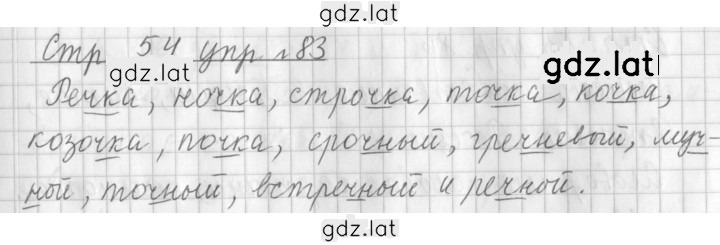 gdz.lat
Стр 54 упр №83
gdz.lat
gdz.lat
Речка, ночка, строчка, точка, кочка,
козочка, почка, срочный, гречневый, муч-
ной, точный, встречный и речной.
gdz.lat